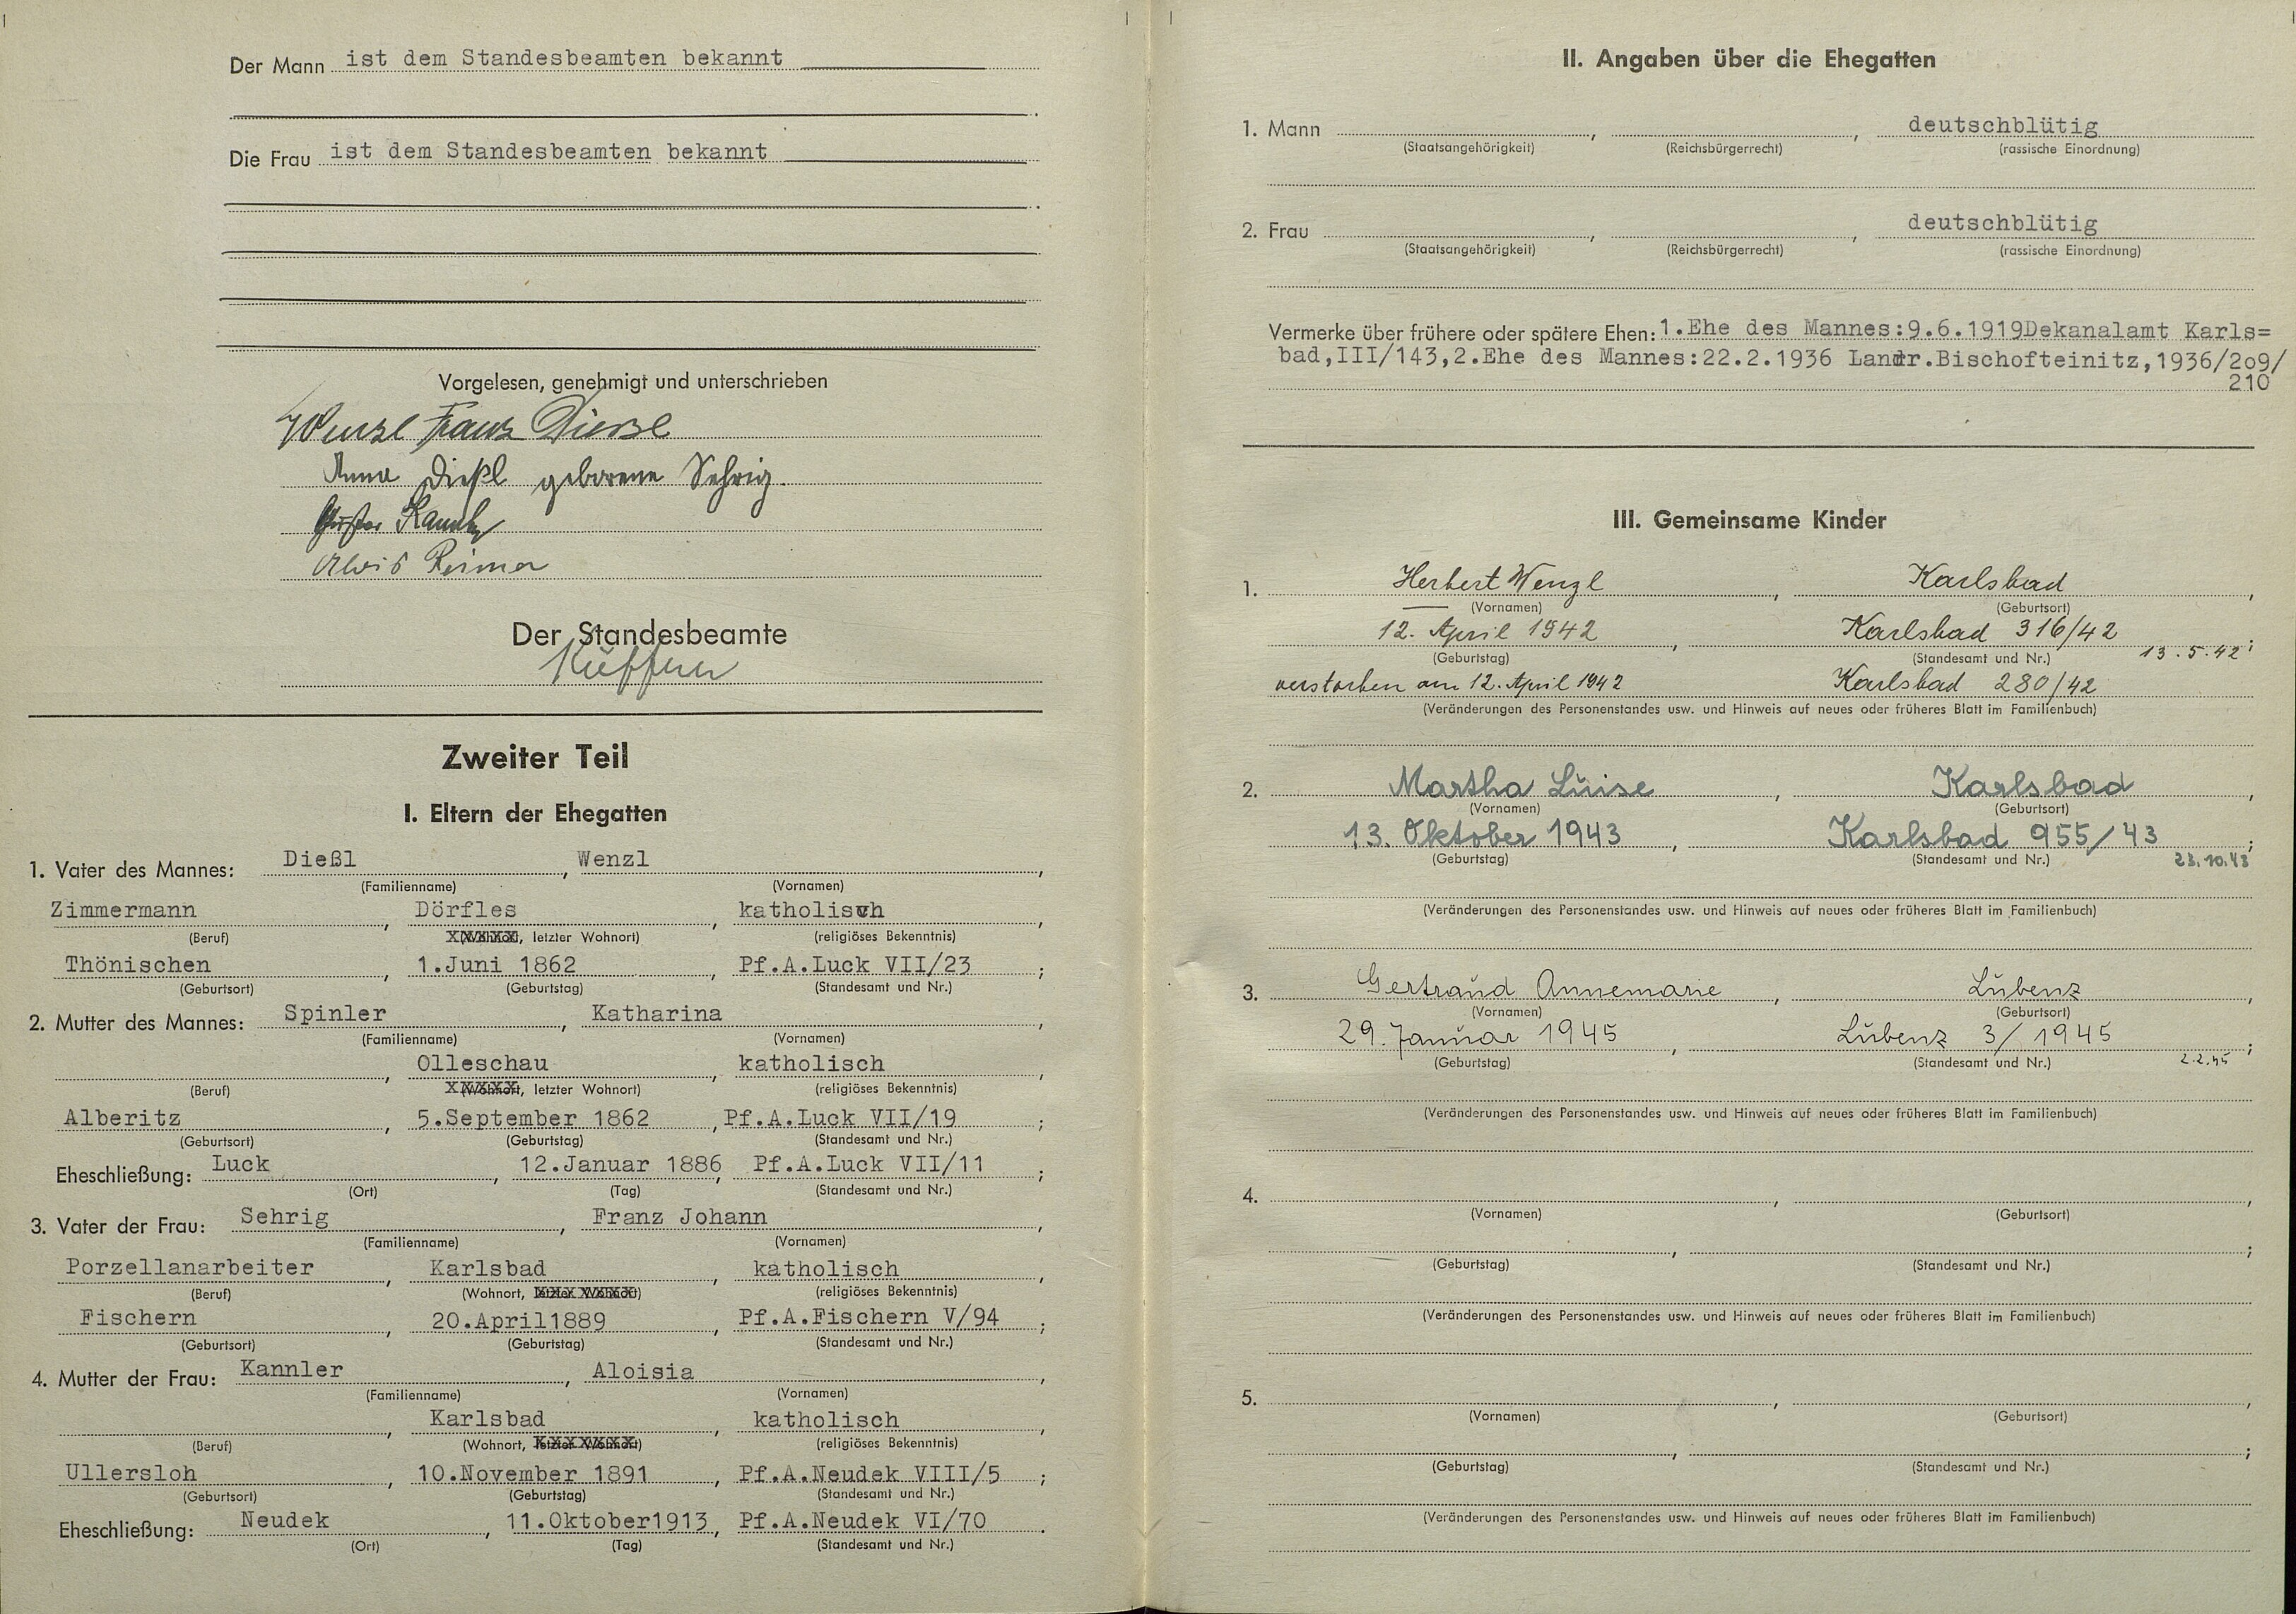 Der Mann ist dem Standesbeamten bekannt
Die Frau ist dem Standesbeamten bekannt
Vorgelesen, genehmigt und unterschrieben
Wenzl Franz Diessl
Anna Dießl geborene Sehrig.
Alois
Der Standesbeamte
Zweiter Teil
I. Eltern der Ehegatten
1. Vater des Mannes: Dießl, Wenzl,
(Familienname) (Vornamen)
Zimmermann, Dörfles, katholisch,
(Beruf) (Wohnort, letzter Wohnort) (religiöses Bekenntnis)
Thönischen, 1.Juni 1862, Pf.A.Luck VII/23;
(Geburtsort) (Geburtstag) (Standesamt und Nr.)
2. Mutter des Mannes: Spinler, Katharina,
(Familienname) (Vornamen)
, Olleschau, katholisch,
(Beruf) (Wohnort, letzter Wohnort) (religiöses Bekenntnis)
Alberitz, 5.September 1862, Pf.A.Luck VII/19;
(Geburtsort) (Geburtstag) (Standesamt und Nr.)
Eheschließung: Luck, 12.Januar 1886, Pf.A.Luck VII/11;
(Ort) (Tag) (Standesamt und Nr.)
3. Vater der Frau: Sehrig, Franz Johann,
(Familienname) (Vornamen)
Porzellanarbeiter, Karlsbad, katholisch,
(Beruf) (Wohnort, letzter Wohnort) (religiöses Bekenntnis)
Fischern, 20.April1889, Pf.A.Fischern V/94;
(Geburtsort) (Geburtstag) (Standesamt und Nr.)
4. Mutter der Frau: Kannler, Aloisia,
(Familienname) (Vornamen)
, Karlsbad, katholisch,
(Beruf) (Wohnort, letzter Wohnort) (religiöses Bekenntnis)
Ullersloh, 10.November 1891, Pf.A.Neudek VIII/5;
(Geburtsort) (Geburtstag) (Standesamt und Nr.)
Eheschließung: Neudek, 11.Oktober1913, Pf.A.Neudek VI/70.
(Ort) (Tag) (Standesamt und Nr.)
II. Angaben über die Ehegatten
1. Mann , , deutschblütig
(Staatsangehörigkeit) (Reichsbürgerrecht) (rassische Einordnung)
2. Frau , , deutschblütig
(Staatsangehörigkeit) (Reichsbürgerrecht) (rassische Einordnung)
Vermerke über frühere oder spätere Ehen: 1.Ehe des Mannes:9.6.1919Dekanalamt Karls=
bad,III/143,2.Ehe des Mannes:22.2.1936 Landr.Bischofteinitz,1936/209/
210
III. Gemeinsame Kinder
1. Herbert Wenzl, Karlsbad,
(Vornamen) (Geburtsort)
12. April 1942, Karlsbad 316/42 13.5.42;
(Geburtstag) (Standesamt und Nr.)
verstorben am 12. April 1942 Karlsbad 280/42
(Veränderungen des Personenstandes usw. und Hinweis auf neues oder früheres Blatt im Familienbuch)
2. Martha Luise, Karlsbad,
(Vornamen) (Geburtsort)
13. Oktober 1943, Karlsbad 955/43;
(Geburtstag) (Standesamt und Nr.) 23.10.43
(Veränderungen des Personenstandes usw. und Hinweis auf neues oder früheres Blatt im Familienbuch)
3. Gertraud Annemarie, Lubenz,
(Vornamen) (Geburtsort)
29. Januar 1945, Lubenz 3/1945;
(Geburtstag) (Standesamt und Nr.) 2.2.45
(Veränderungen des Personenstandes usw. und Hinweis auf neues oder früheres Blatt im Familienbuch)
4. , ,
(Vornamen) (Geburtsort)
, ;
(Geburtstag) (Standesamt und Nr.)
(Veränderungen des Personenstandes usw. und Hinweis auf neues oder früheres Blatt im Familienbuch)
5. , ,
(Vornamen) (Geburtsort)
, ;
(Geburtstag) (Standesamt und Nr.)
(Veränderungen des Personenstandes usw. und Hinweis auf neues oder früheres Blatt im Familienbuch)